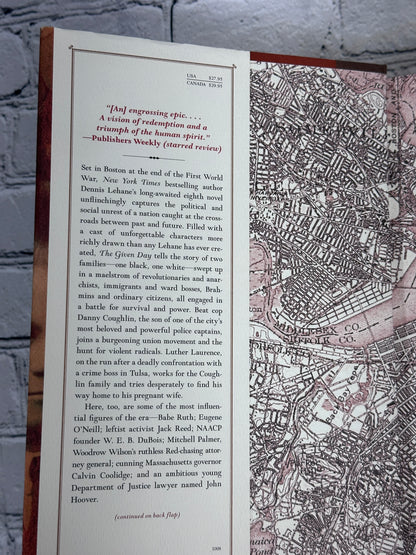 USA $27.95
CANADA $29.95
“[An] engrossing epic. . . .
A vision of redemption and a
triumph of the human spirit.”
—Publishers Weekly (starred review)
Set in Boston at the end of the First World
War, New York Times bestselling author
Dennis Lehane's long-awaited eighth novel
unflinchingly captures the political and
social unrest of a nation caught at the cross-
roads between past and future. Filled with
a cast of unforgettable characters more
richly drawn than any Lehane has ever cre-
ated, The Given Day tells the story of two
families—one black, one white—swept up
in a maelstrom of revolutionaries and anar-
chists, immigrants and ward bosses, Brah-
mins and ordinary citizens, all engaged in
a battle for survival and power. Beat cop
Danny Coughlin, the son of one of the city's
most beloved and powerful police captains,
joins a burgeoning union movement and the
hunt for violent radicals. Luther Laurence,
on the run after a deadly confrontation with
a crime boss in Tulsa, works for the Cough-
lin family and tries desperately to find his
way home to his pregnant wife.
Here, too, are some of the most influen-
tial figures of the era—Babe Ruth; Eugene
O'Neill; leftist activist Jack Reed; NAACP
founder W. E. B. DuBois; Mitchell Palmer,
Woodrow Wilson's ruthless Red-chasing attor-
ney general; cunning Massachusetts governor
Calvin Coolidge; and an ambitious young
Department of Justice lawyer named John
Hoover.
(continued on back flap)
1008
SUFFOLK CO.
Pond